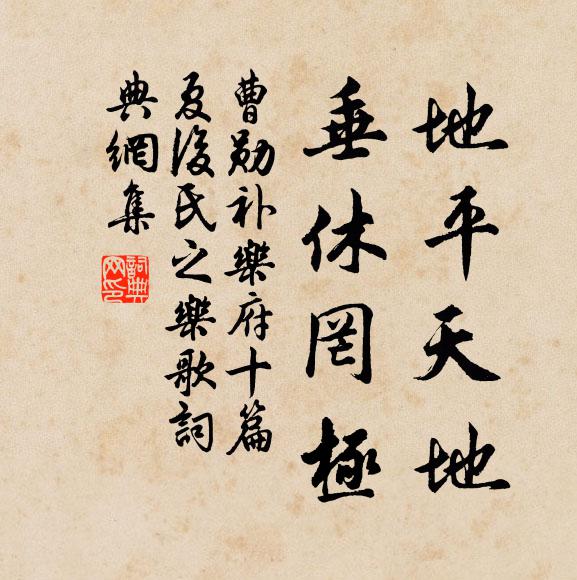 地平天地
垂休罔極
曹勛补樂府十篇
夏後氏之樂歌詞
典網集
詞典网印